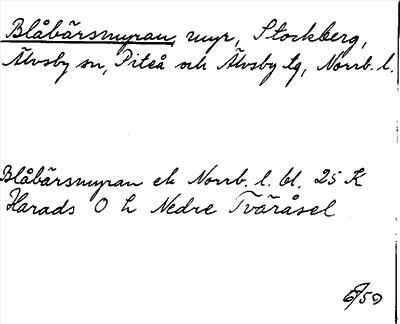 Blåbärsmyran, myr, Stockberg,
Älvsby sn, Piteå och Älvsby tg, Norrb. l.
Blåbärsmyran ek Norrb. l. bl. 25 K
Harads O h Nedre Tväråsel
6/59